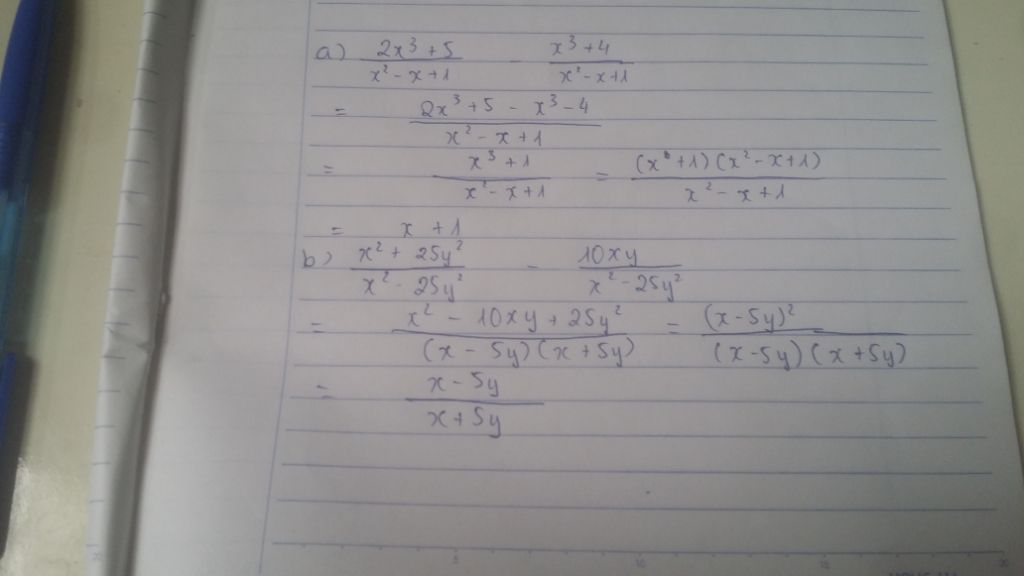 a) \frac{2x³+5}{x²-x+1} - \frac{x³+4}{x²-x+1}
= \frac{2x³+5-x³-4}{x²-x+1}
= \frac{x³+1}{x²-x+1} = \frac{(x+1)(x²-x+1)}{x²-x+1}
= x+1
b) \frac{x²+25y²}{x²-25y²} - \frac{10xy}{x²-25y²}
= \frac{x²-10xy+25y²}{(x-5y)(x+5y)} = \frac{(x-5y)²}{(x-5y)(x+5y)}
= \frac{x-5y}{x+5y}
5 10 15 20